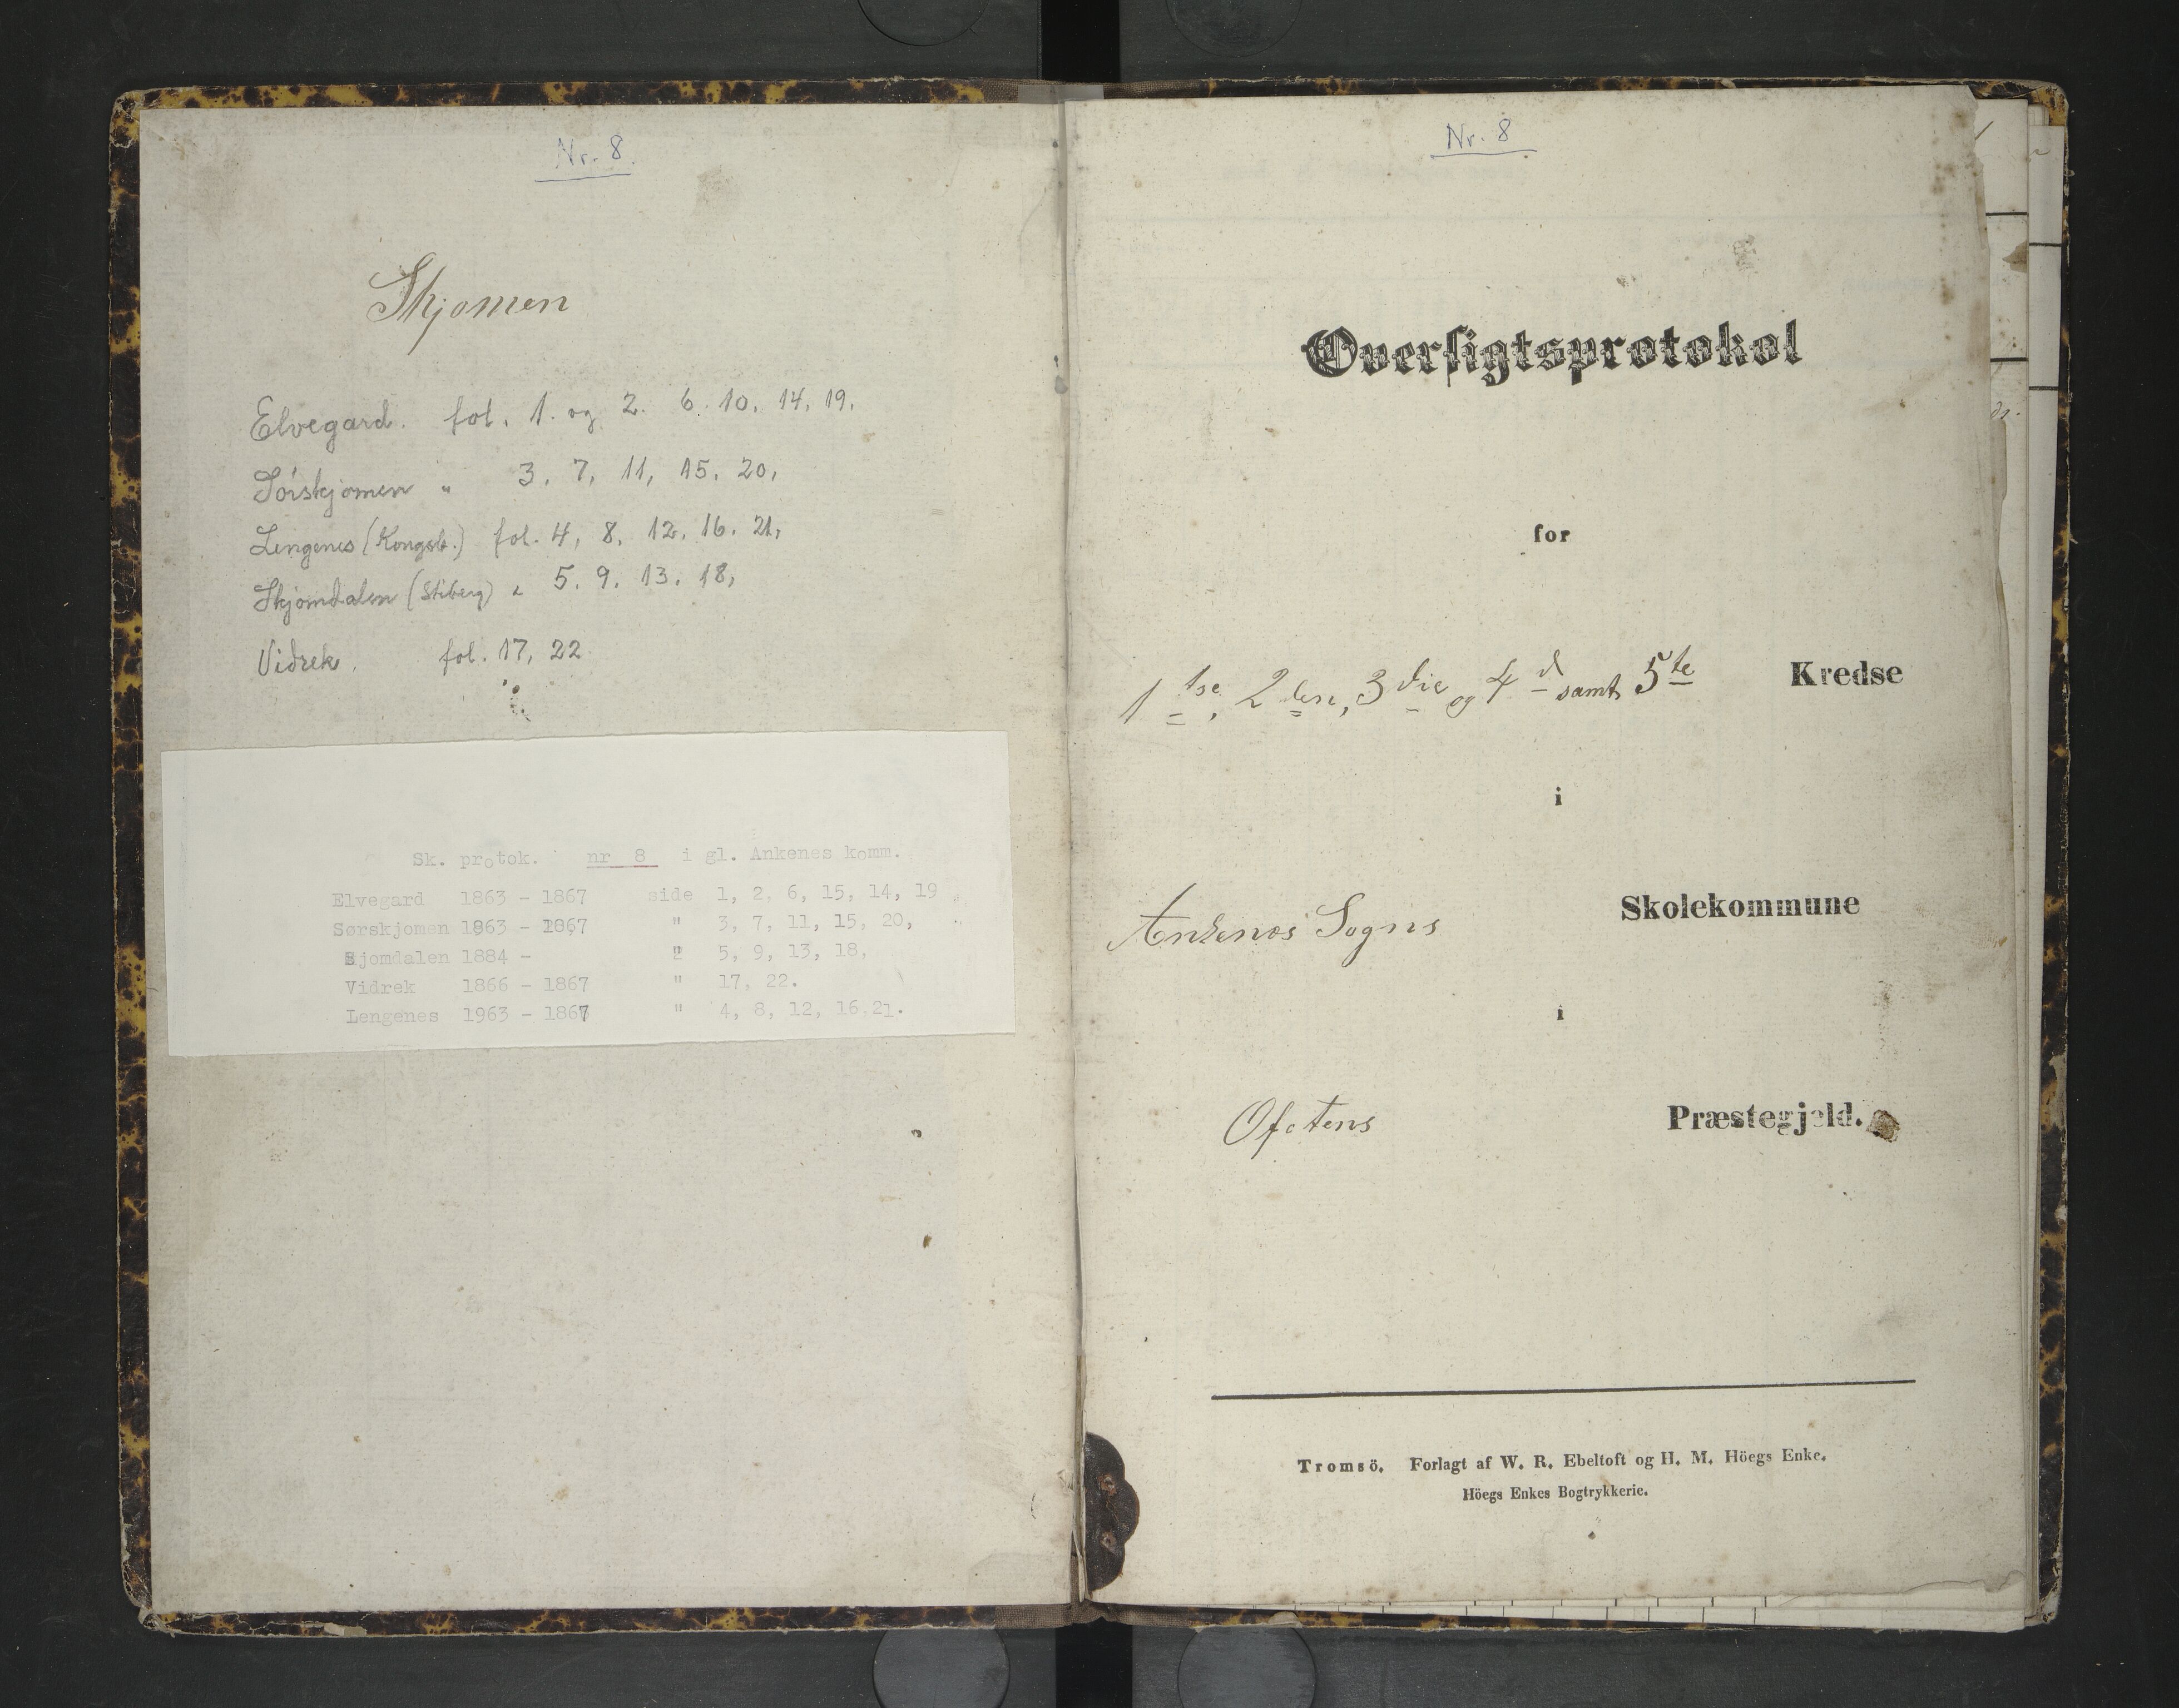 Nr. 8.
Skjomen
Elvegard. fol. 1. og 2. 6. 10. 14, 19.
Sörskjomen " 3. 7, 11, 15. 20,
Lengenes (Kongsb.) fol. 4, 8. 12. 16. 21,
Skjomdalen (Stiberg) " 5. 9. 13. 18,
Vidrek. fol. 17, 22
Sk. protok. nr 8 i gl. Ankenes komm.
Elvegard 1863 - 1867 side 1, 2, 6, 15, 14, 19
Sørskjomen 1863 - 1867 " 3, 7, 11, 15, 20,
Sjomdalen 1884 - " 5, 9, 13, 18,
Vidrek 1866 - 1867 " 17, 22.
Lengenes 1963 - 1867 " 4, 8, 12, 16, 21.
Nr. 8
Oversigtsprotokol
for
1ste, 2den, 3die og 4d samt 5te Kredse
i
Ankenes Sogns Skolekommune
i
Ofotens Præstegjeld.
Tromsö. Forlagt af W. R. Ebeltoft og H. M. Höegs Enke.
Höegs Enkes Bogtrykkerie.